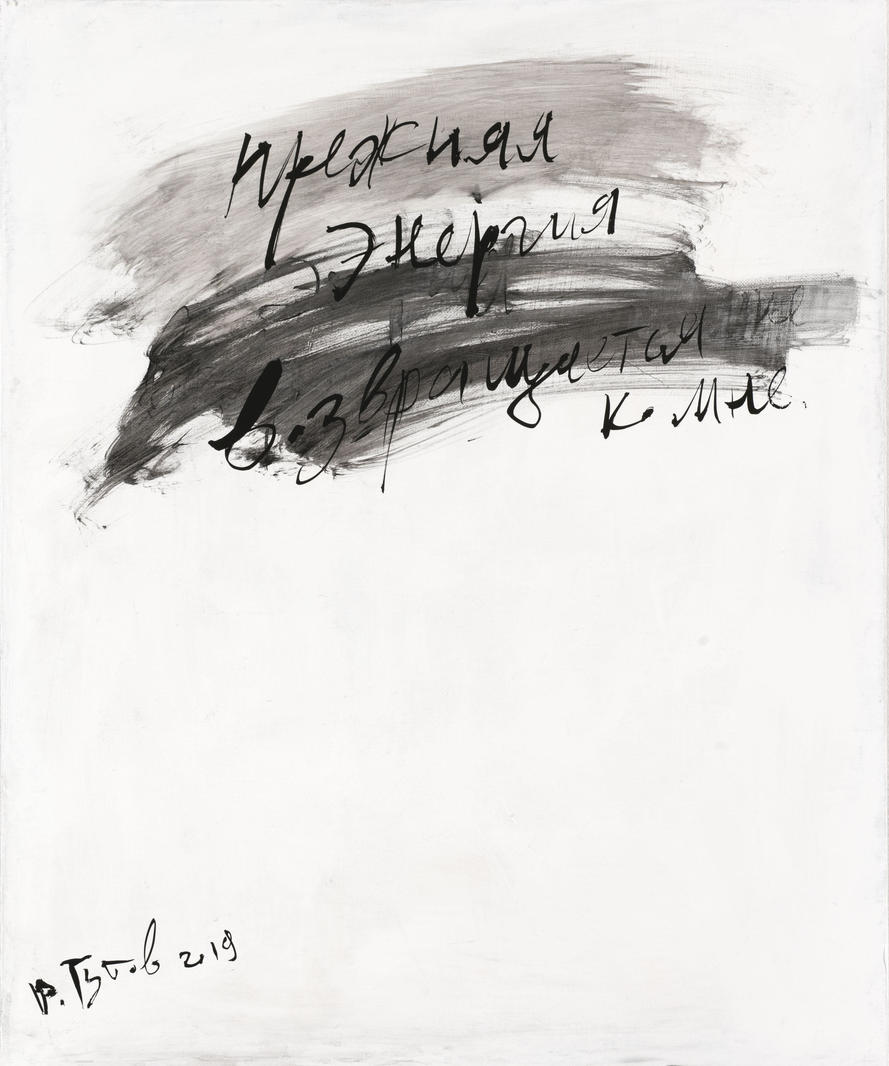 прежняя
энергия
возвращается
ко мне.
Гутов 2019